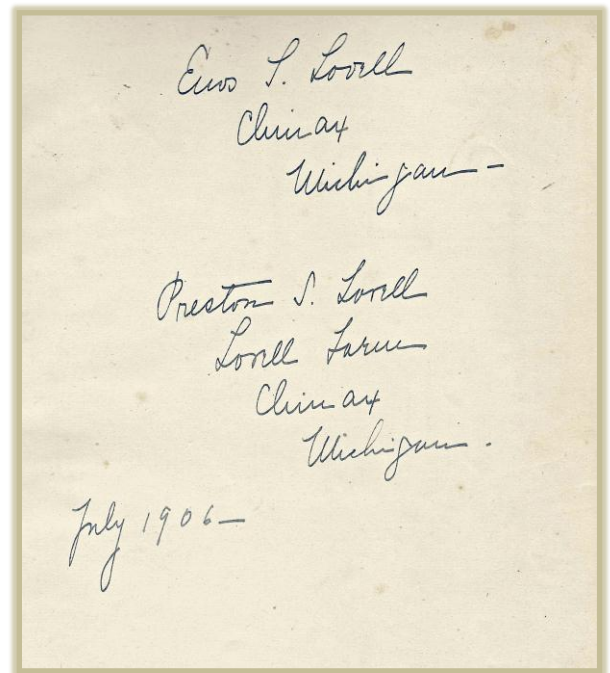 Enos T. Lovell
Climax
Michigan -
Preston S. Lovell
Lovell Farm
Climax
Michigan.
July 1906 -